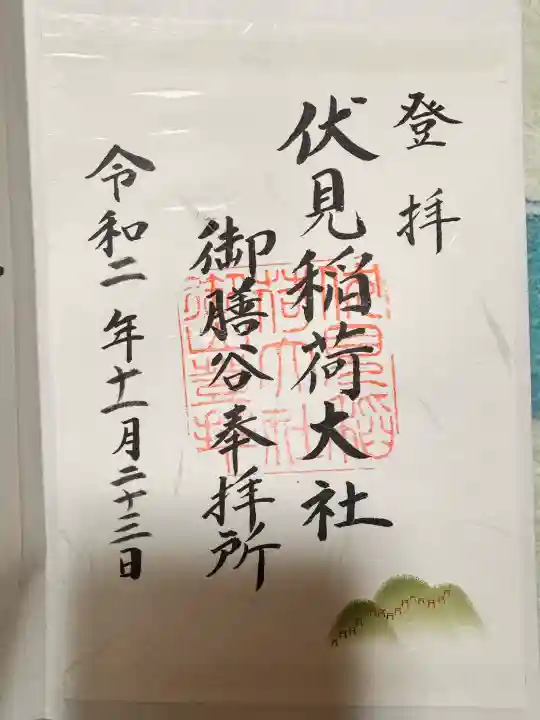 登拝
伏見稲荷大社
御膳谷奉拝所
令和二年十一月二十三日